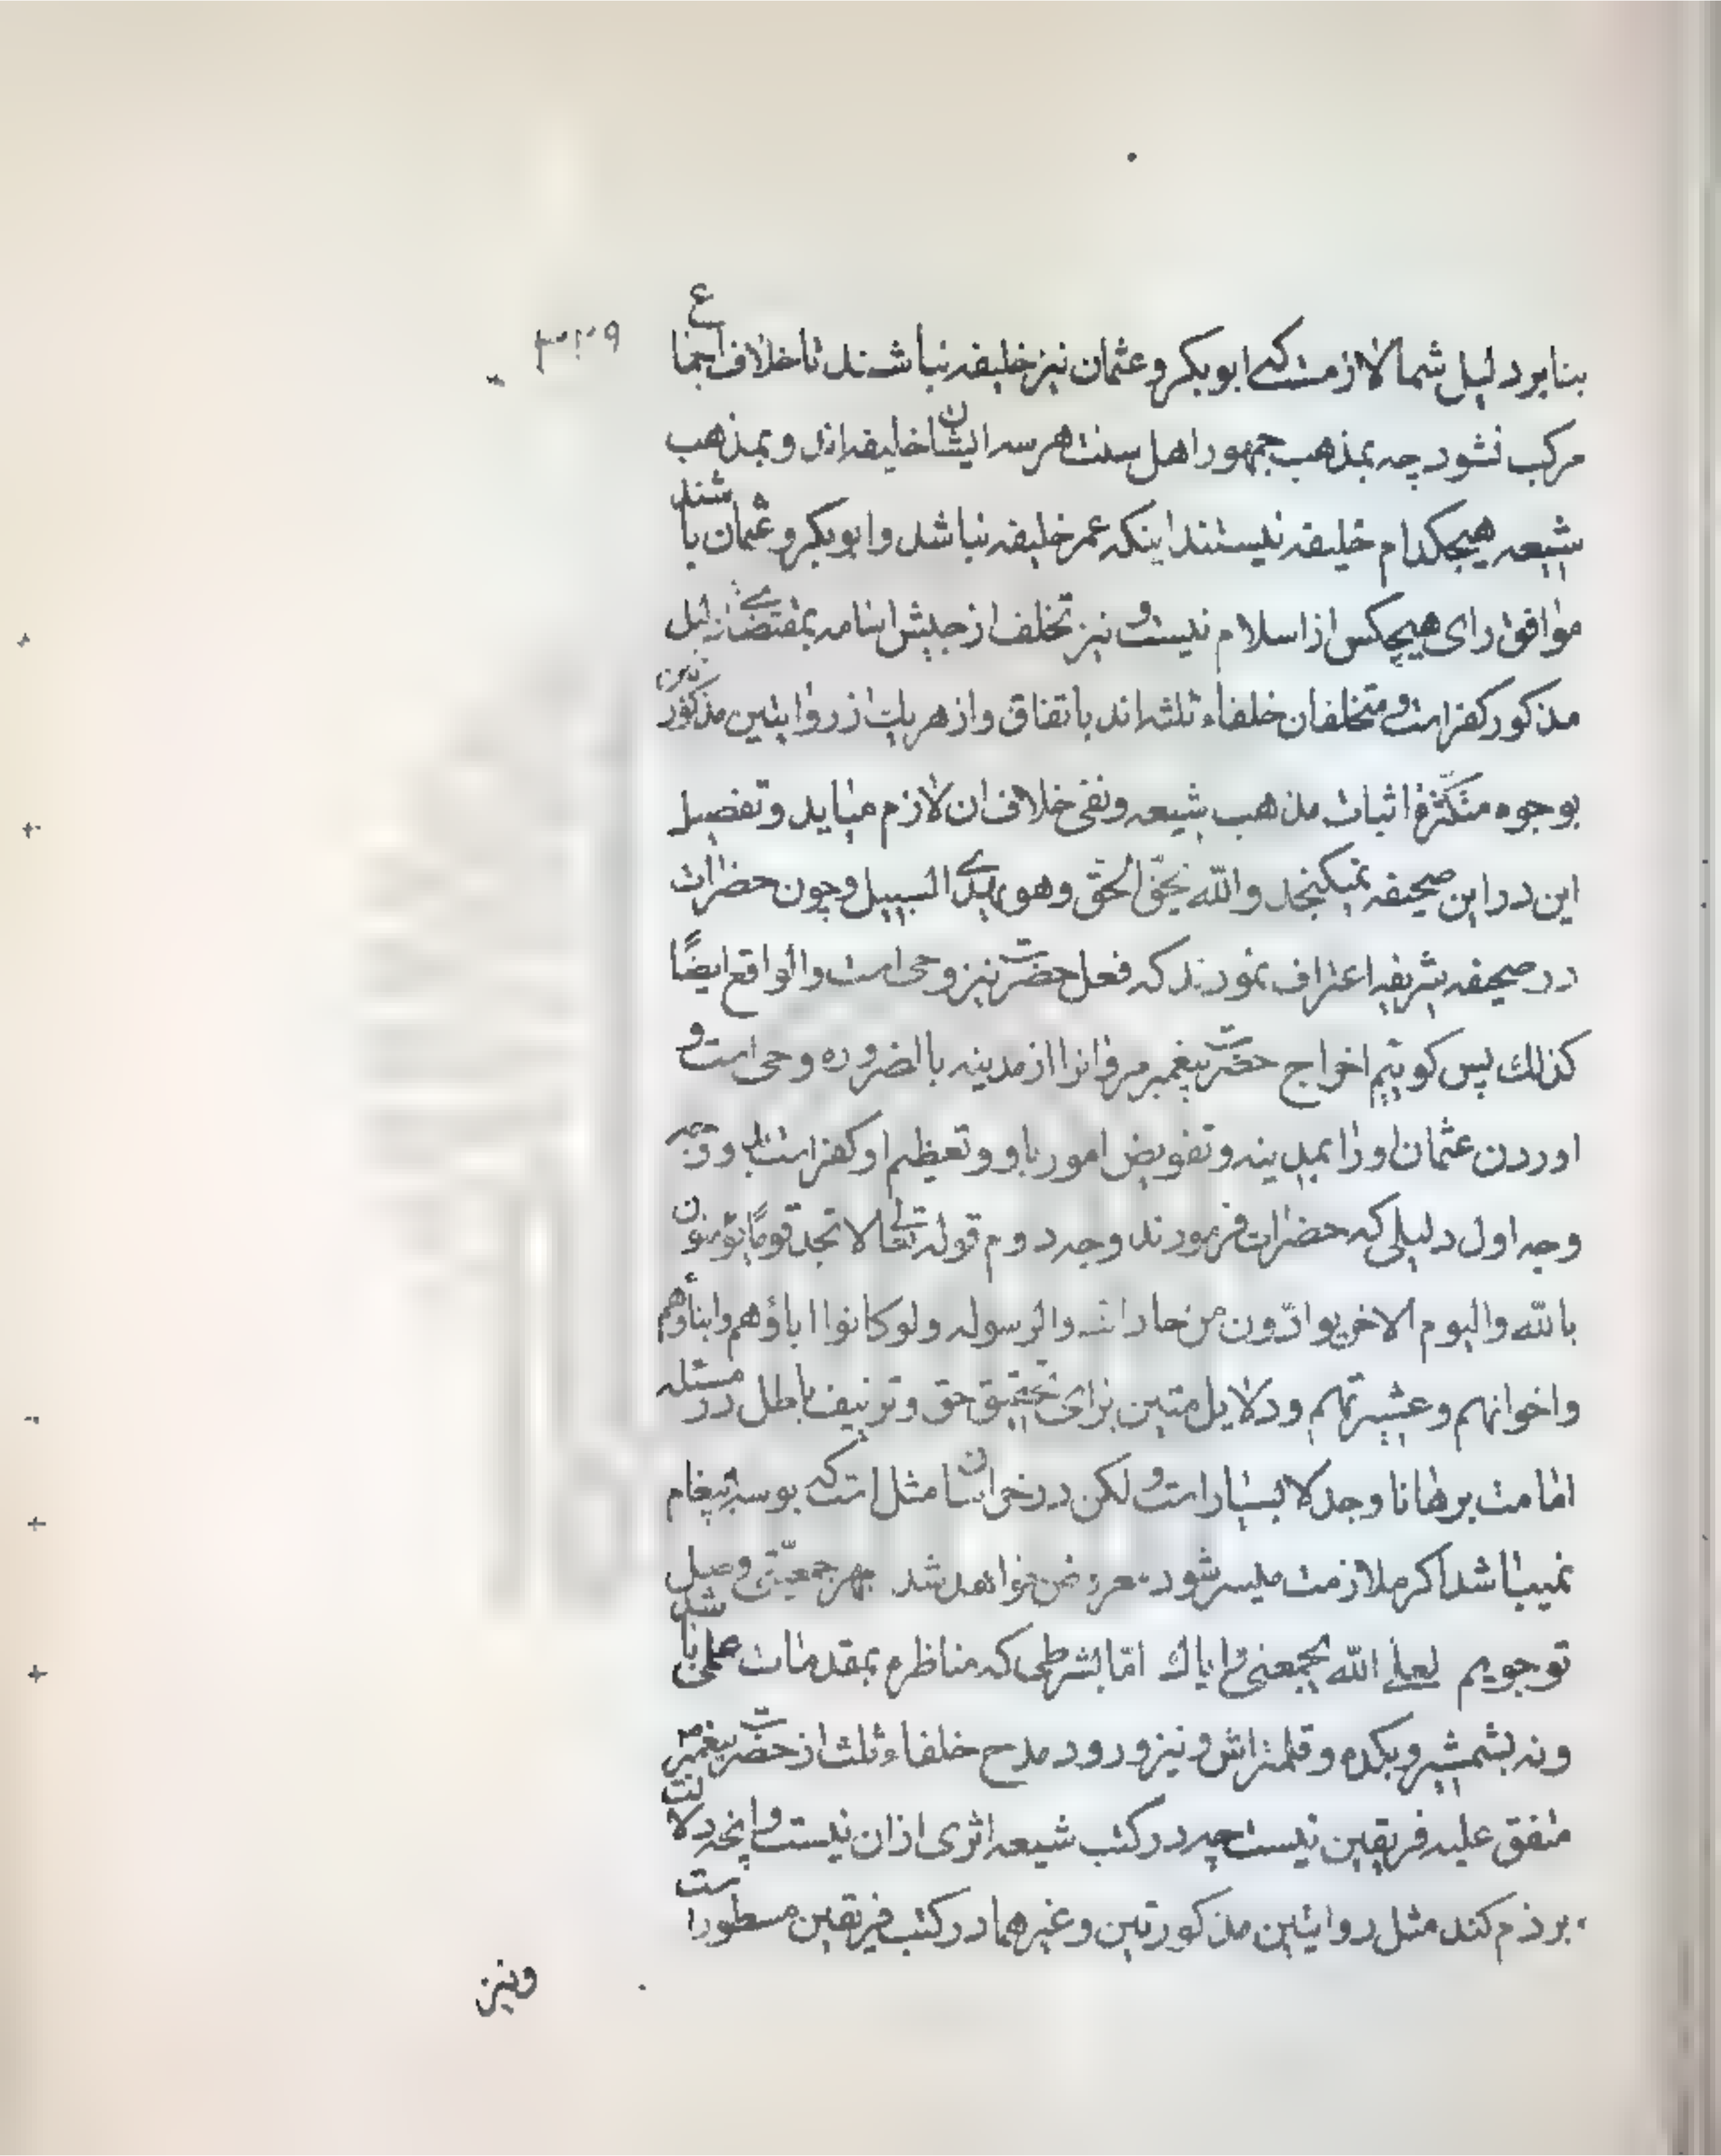 ۳۲۹
بنابر دلیل شما لازمست که ابوبکر و عثمان نیز خلیفه نباشند تا خلاف اجماع
مرکب نشود چه بمذهب جمهور اهل سنت هر سه ایشان خلیفه اند و بمذهب
شیعه هیچکدام خلیفه نیستند اینکه عمر خلیفه نباشد و ابوبکر و عثمان باشند
موافق رای هیچکس از اسلام نیست و نیز تخلف از جیش اسامه بمقتضای دلیل
مذکور کفر است و متخلفان خلفاء ثلثه اند باتفاق و از هر یك از روایتین مذکورتین
بوجوه متکثره اثبات مذهب شیعه و نفی خلاف ان لازم میاید و تفصیل
این در این صحیفه نمیکنجد والله یحق الحق وهو یهدی السبیل و چون حضرات
در صحیفه شریفه اعتراف نمودند که فعل حضرت نیز وحی است والواقع ایضًا
کذلك پس کوییم اخراج حضرت پیغمبر مروانرا از مدینه بالضروره وحی است و
اوردن عثمان او را بمدینه و تفویض امور باو و تعظیم او کفر است بدو وجه
وجه اول دلیلی که حضرات فرمودند وجه دوم قوله تعالی لا تجد قومًا یؤمنون
بالله والیوم الاخر یوادّون من حاد الله والرسوله ولو کانوا اباؤهم وابناؤهم
واخوانهم وعشیرتهم و دلایل متین برای تحقیق حق و تزییف باطل در مسئله
امامت برهانا وجدلا بسیار است و لکن در خراسان مثل است که بوسه بپیغام
نمیباشد اکر ملازمت میسر شود معروض خواهد شد بهر جمعیتی وصل
تو جویم لعل الله یجمعنی وایاك امّا بشرطی که مناظره بمقدمات علمی باشد
ونه بشمشیر و بکده و قلمتراش و نیز ورود مدح خلفاء ثلث از حضرت پیغمبر
متفق علیه فریقین نیست چه در کتب شیعه اثری از ان نیست و انچه دلالت
بر ذم کند مثل روایتین مذکورتین و غیرهما در کتب فریقین مسطور است
ونیز